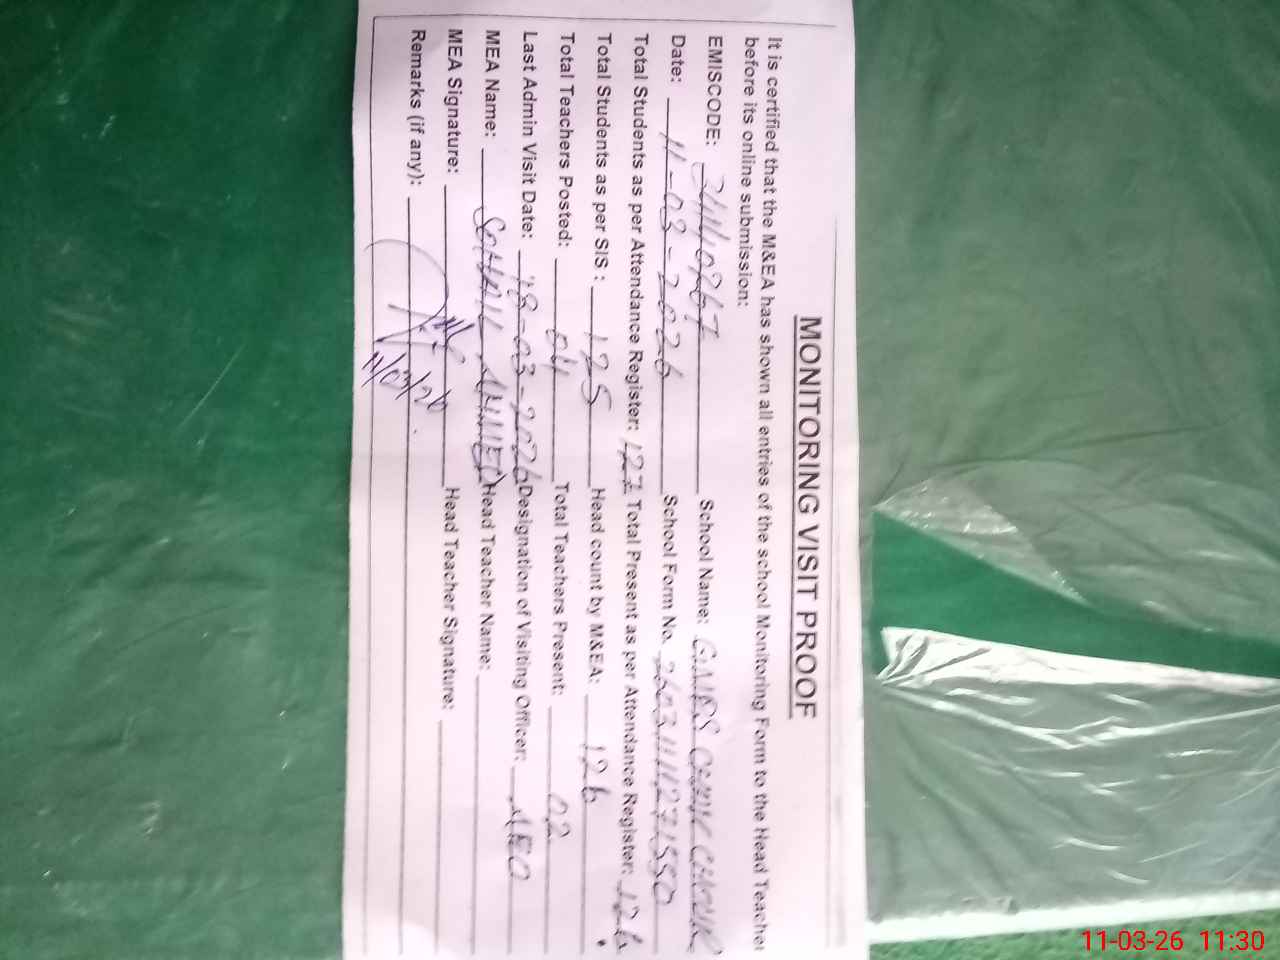 MONITORING VISIT PROOF
It is certified that the M&EA has shown all entries of the school Monitoring Form to the Head Teacher
before its online submission:
EMISCODE: School Name:
Date: 11-03-2026 School Form No. 26031111271550
Total Students as per Attendance Register: 127 Total Present as per Attendance Register: 126
Total Students as per SIS: 125 Head count by M&EA: 126
Total Teachers Posted: 04 Total Teachers Present: 02
Last Admin Visit Date: -03-2026 Designation of Visiting Officer: AEO
MEA Name: SOHAIL AHMED Head Teacher Name:
MEA Signature: Head Teacher Signature:
Remarks (if any):
11-03-26 11:30